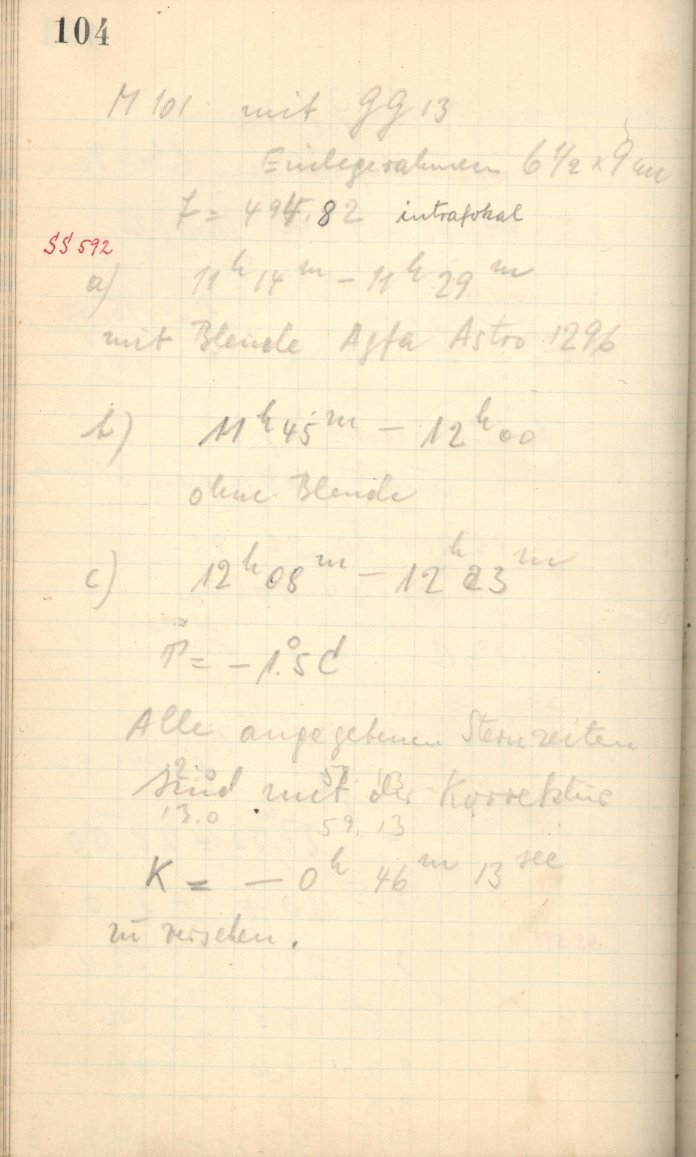 104
M 101 mit GG 13
Einlegerahmen 6 1/2 x 9 cm
f = 494.82 intrafokal
SS 592
a) 11h 14m – 11h 29m
mit Blende Agfa Astro 1296
b) 11h 45m – 12h 00
ohne Blende
c) 12h 08m – 12h 23m
T = – 1.°5 C
Alle angegebenen Sternzeiten
sind mit der Korrektur
13.0 59. 13
K = – 0h 46m 13sec
zu versehen.